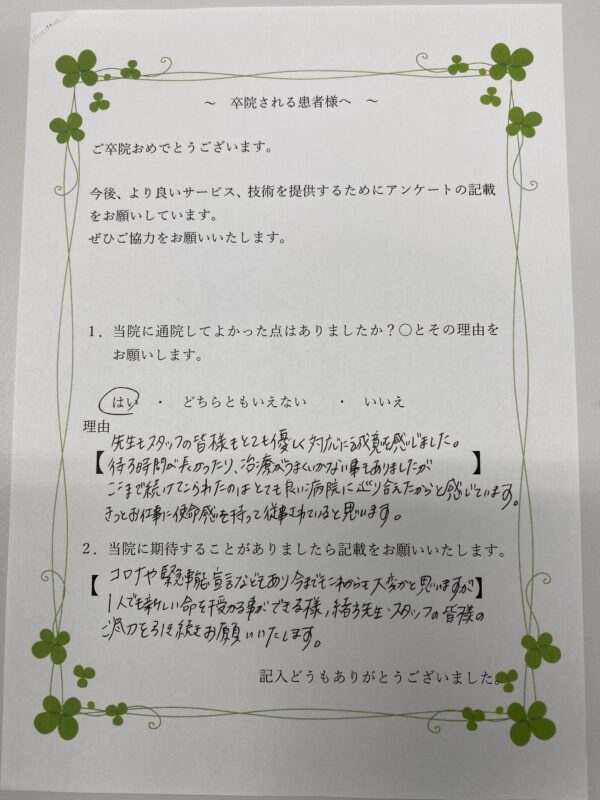 ～ 卒院される患者様へ ～
ご卒院おめでとうございます。
今後、より良いサービス、技術を提供するためにアンケートの記載
をお願いしています。
ぜひご協力をお願いいたします。
１．当院に通院してよかった点はありましたか？〇とその理由を
お願いします。
はい ・ どちらともいえない ・ いいえ
理由
先生もスタッフの皆様もとても優しく対応に誠意を感じました。
【待ち時間が長かったり、治療がうまくいかない事もありましたが】
ここまで続けてこられたのはとても良い病院に巡り合えたからと感じています。
きっとお仕事に使命感を持って従事されていると思います。
２．当院に期待することがありましたら記載をお願いいたします。
【コロナや緊急事態宣言などもあり今までもこれからも大変かと思いますが】
1人でも新しい命を授かる事ができる様、緒方先生・スタッフの皆様の
ご尽力を引き続きお願いいたします。
記入どうもありがとうございました。